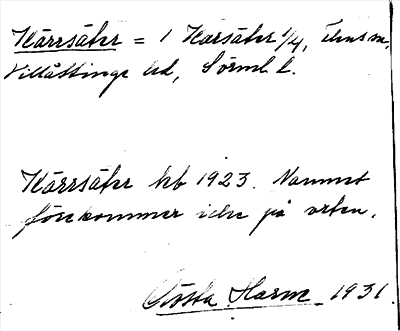 Kärrsäter = 1 Karsäter 1/4, Flens sn,
Villåttinge hd, Sörml l.
Kärrsäter kb 1923. Namnet
förekommer icke på orten.
Gösta Harm 1931.